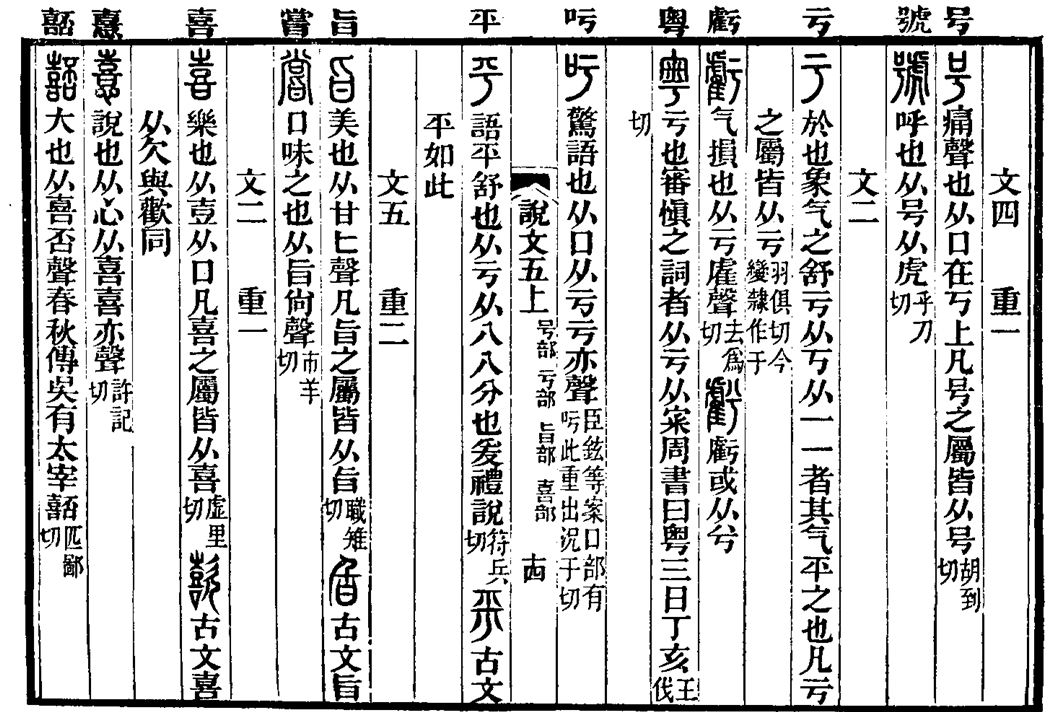 号
號
亏
虧
粤
吁
平
旨
嘗
喜
憙
嚭
文四 重一
号 痛聲也从口在丂上凡号之屬皆从号胡到切
號 呼也从号从虎乎刀切
文二
亏 於也象气之舒亏从丂从一一者其气平之也凡亏
之屬皆从亏羽俱切今變隸作于
虧 气損也从亏雐聲去爲切 虧 虧或从兮
粤 亏也審愼之詞者从亏从宷周書曰粤三日丁亥王伐
切
吁 驚語也从口从亏亏亦聲臣鉉等案口部有吁此重出況于切
說文五上 号部 亏部 旨部 喜部 十四
平 語平舒也从亏从八八分也爰禮說符兵切 平 古文
平如此
文五 重二
旨 美也从甘匕聲凡旨之屬皆从旨職雉切 旨 古文旨
嘗 口味之也从旨尙聲市羊切
文二 重一
喜 樂也从壴从口凡喜之屬皆从喜虛里切 歖 古文喜
从欠與歡同
憙 說也从心从喜喜亦聲許記切
嚭 大也从喜否聲春秋傳吳有太宰嚭匹鄙切